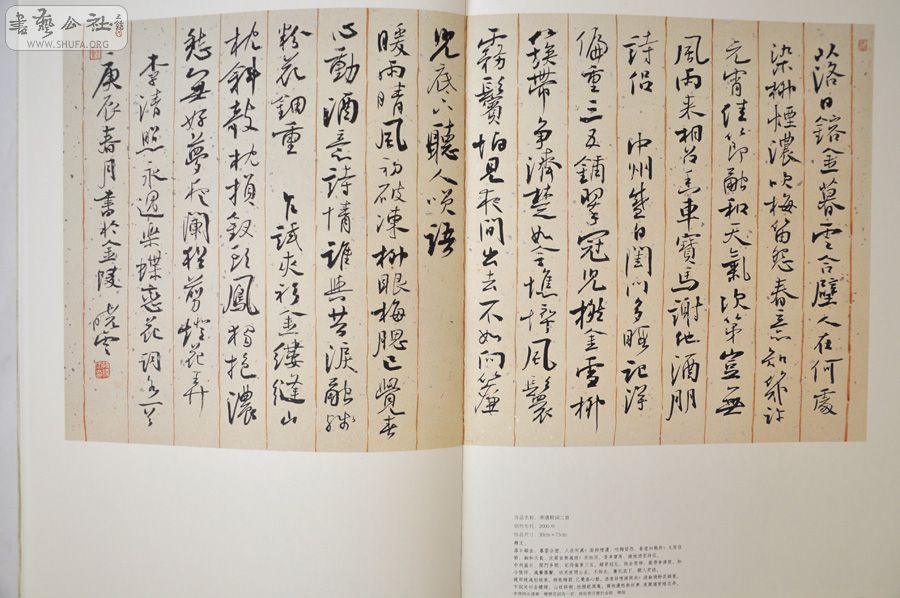 書藝公社
WWW.SHUFA.ORG
落日鎔金暮雲合璧人在何處
染柳煙濃吹梅笛怨春意知幾許
元宵佳節融和天氣次第豈無
風雨来相召香車寶馬謝他酒朋
詩侶 中州盛日閨門多暇記得
偏重三五鋪翠冠兒撚金雪柳
簇帶爭濟楚如今憔悴風鬟
霧鬢怕見夜間出去不如向簾
兒底下聽人笑語
暖雨晴風初破凍柳眼梅腮已覺春
心動酒意詩情誰與共淚融殘
粉花鈿重 乍試夾衫金縷縫山
枕斜敧枕損釵頭鳳獨抱濃
愁無好夢夜闌猶剪燈花弄
李清照永遇樂蝶恋花詞各一首
庚辰春月書於金陵 曉雲
作品名称：李清照词二首
创作年代：2000年
作品尺寸：
释文：